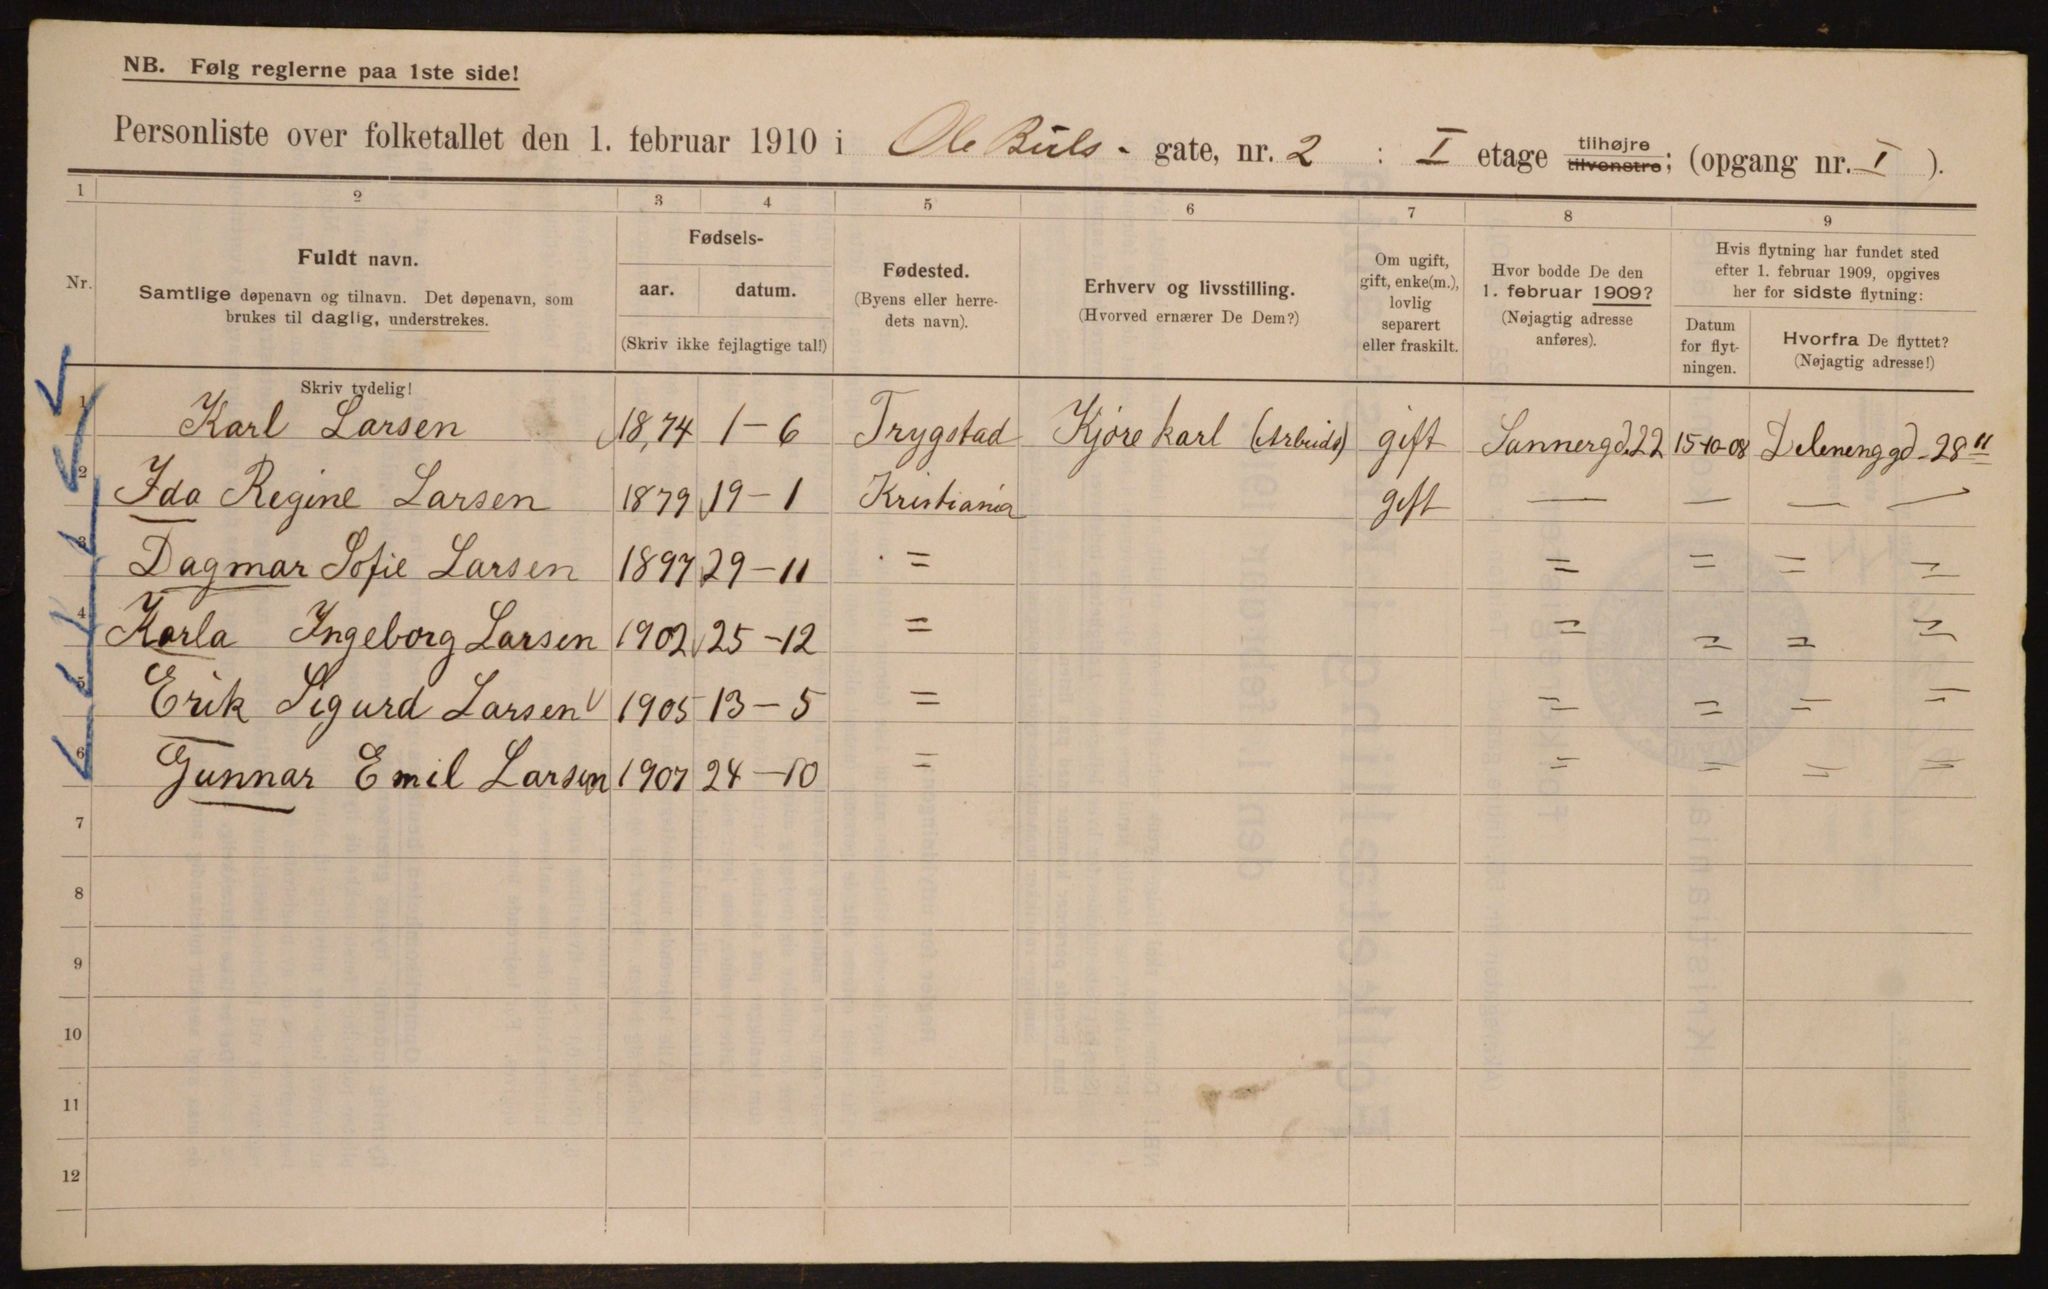 NB. Følg reglerne paa 1ste side!
Personliste over folketallet den 1. februar 1910 i Ole Buls - gate, nr. 2 : I etage tilhøjre tilvenstre; (opgang nr. I ).
1 2 3 4 5 6 7 8 9
Nr.
Fuldt navn.
Samtlige døpenavn og tilnavn. Det døpenavn, som
brukes til daglig, understrekes.
Skriv tydelig!
Fødsels-
aar. datum.
(Skriv ikke fejlagtige tal!)
Fødested.
(Byens eller herre-
dets navn).
Erhverv og livsstilling.
(Hvorved ernærer De Dem?)
Om ugift,
gift, enke(m.),
lovlig
separert
eller fraskilt.
Hvor bodde De den
1. februar 1909?
(Nøjagtig adresse
anføres).
Hvis flytning har fundet sted
efter 1. februar 1909, opgives
her for sidste flytning:
Datum
for flyt-
ningen.
Hvorfra De flyttet?
(Nøjagtig adresse!)
1 Karl Larsen 1874 1-6 Trygstad Kjøre karl (Arbeids) gift Sannergd. 22 15-10-08 Delenenggd - 28 II
2 Ida Regine Larsen 1879 19-1 Kristiania gift — — — —
3 Dagmar Sofie Larsen 1897 29-11 = = = = =
4 Karla Ingeborg Larsen 1902 25-12 = = = = =
5 Erik Sigurd Larsen 1905 13-5 = = = = =
6 Gunnar Emil Larsen 1907 24-10 = = = = =
7
8
9
10
11
12